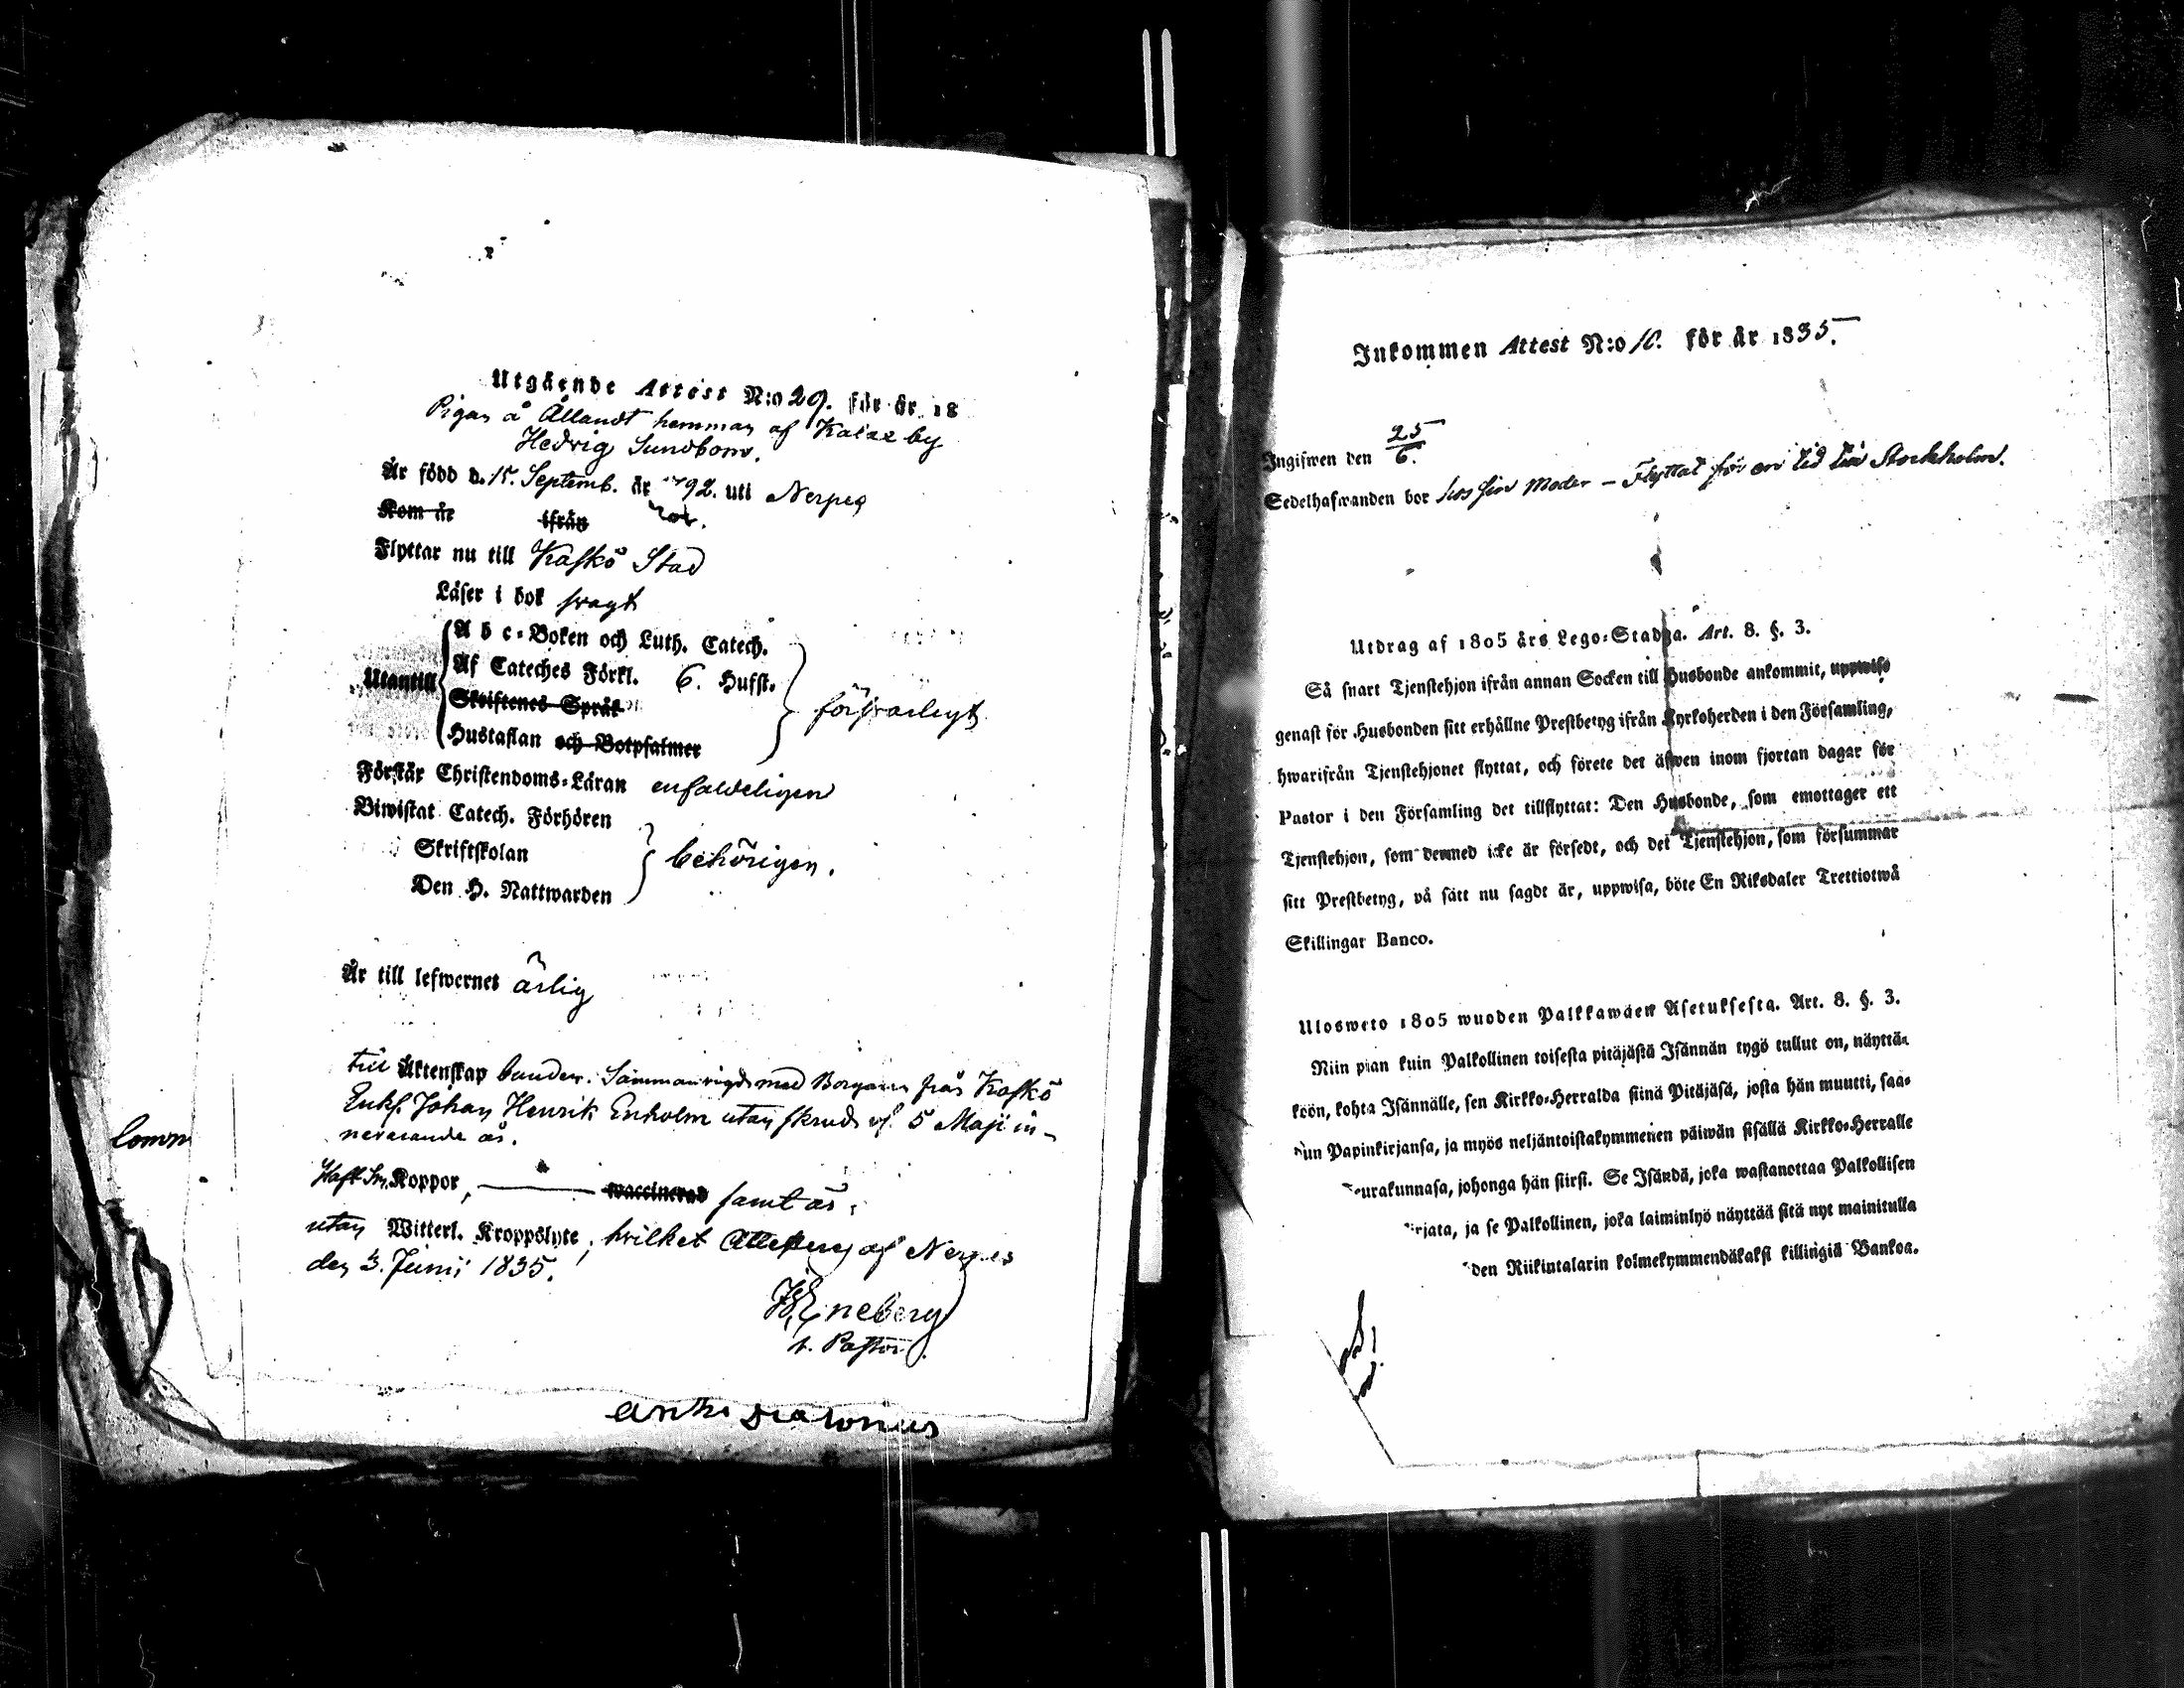 Utgående Attest N:o 29. för år 18
Pigan å Ållandt hemman af Kalax by
Hedvig Sundbom.
Är född d. 15. Septemb. år 1792. uti Nerpes
Kom år ifrån
Flyttar nu till Kaskö Stad
Läser i bok svagt
Utantill
A b c-Boken och Luth. Catech.
Af Cateches Förkl. 6. Hufst.
Skriftenes Språk
Hustaflan och Botpsalmer
försvarligt
Förstår Christendoms-Läran enfaldeligen
Biwistat Catech. Förhören
Skriftskolan
Den H. Nattwarden
behörigen.
Är till lefwernet ärlig
till Äktenskap bunden. Sammanvigd med Borgaren från Kaskö
Enkl. Johan Henrik Enholm utan skrud d. 5 Maji in-
nevarande år.
Haft Sm. Koppor, waccinerad samt är
utan Witterl. Kroppslyte; hvilket Attesteras af Nerpes
den 3. Junii 1835.
Eneberg
t. Pastor.
Inkommen Attest N:o 10. för år 1835.
Ingifwen den 25/6.
Sedelhafwanden bor hos sin Moder – Flyttat för en tid till Stockholm.
Utdrag af 1805 års Lego-Stadga. Art. 8. §. 3.
Så snart Tjenstehjon ifrån annan Socken till Husbonde ankommit, uppwise
genast för Husbonden sitt erhållne Prestbetyg ifrån Kyrkoherden i den Församling,
hwarifrån Tjenstehjonet flyttat, och förete det äfwen inom fjortan dagar för
Pastor i den Församling det tillflyttat: Den Husbonde, som emottager ett
Tjenstehjon, som dermed icke är försedt, och det Tjenstehjon, som försummar
sitt Prestbetyg, på sätt nu sagdt är, uppwisa, böte En Riksdaler Trettiotwå
Skillingar Banco.
Ulosweto 1805 wuoden Palkkawäen Asetuksesta. Art. 8. §. 3.
Niin pian kuin Palkollinen toisesta pitäjästä Isännän tygö tullut on, näyttä-
köön, kohta Isännälle, sen Kirkko-Herralda siinä Pitäjäsä, josta hän muutti, saa-
dun Papinkirjansa, ja myös neljäntoistakymmenen päiwän sisällä Kirkko-Herralle
eurakunnasa, johonga hän siirsi. Se Isändä, joka wastanottaa Palkollisen
irjata, ja se Palkollinen, joka laiminlyö näyttää sitä nyt mainitulla
den Riikintalarin kolmekymmendäkaksi killingiä Bankoa.